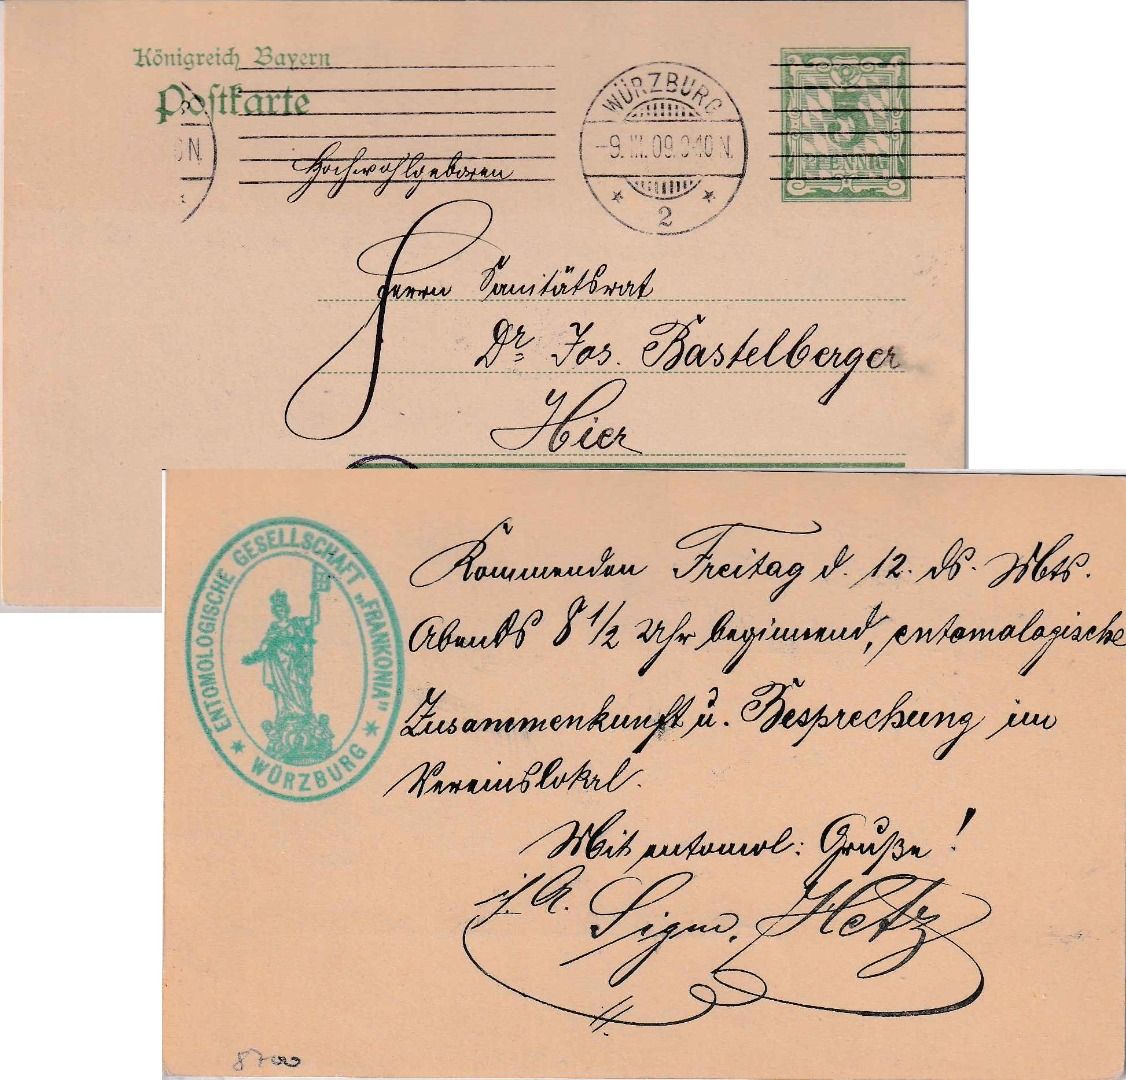 Königreich Bayern
Postkarte
WÜRZBURG
-9.III.09.9-10N.
2
5
PFENNIG
Hochwohlgeboren
Herrn Sanitätsrat
Dr. Jos. Bastelberger
Hier
ENTOMOLOGISCHE GESELLSCHAFT „FRANKONIA"
WÜRZBURG
Kommenden Freitag d. 12. ds. Mts.
Abends 8 1/2 Uhr beginnend, entomologische
Zusammenkunft u. Besprechung im
Vereinslokal.
Mit entomol: Gruße!
i. A. Sigm. Hetz
8700